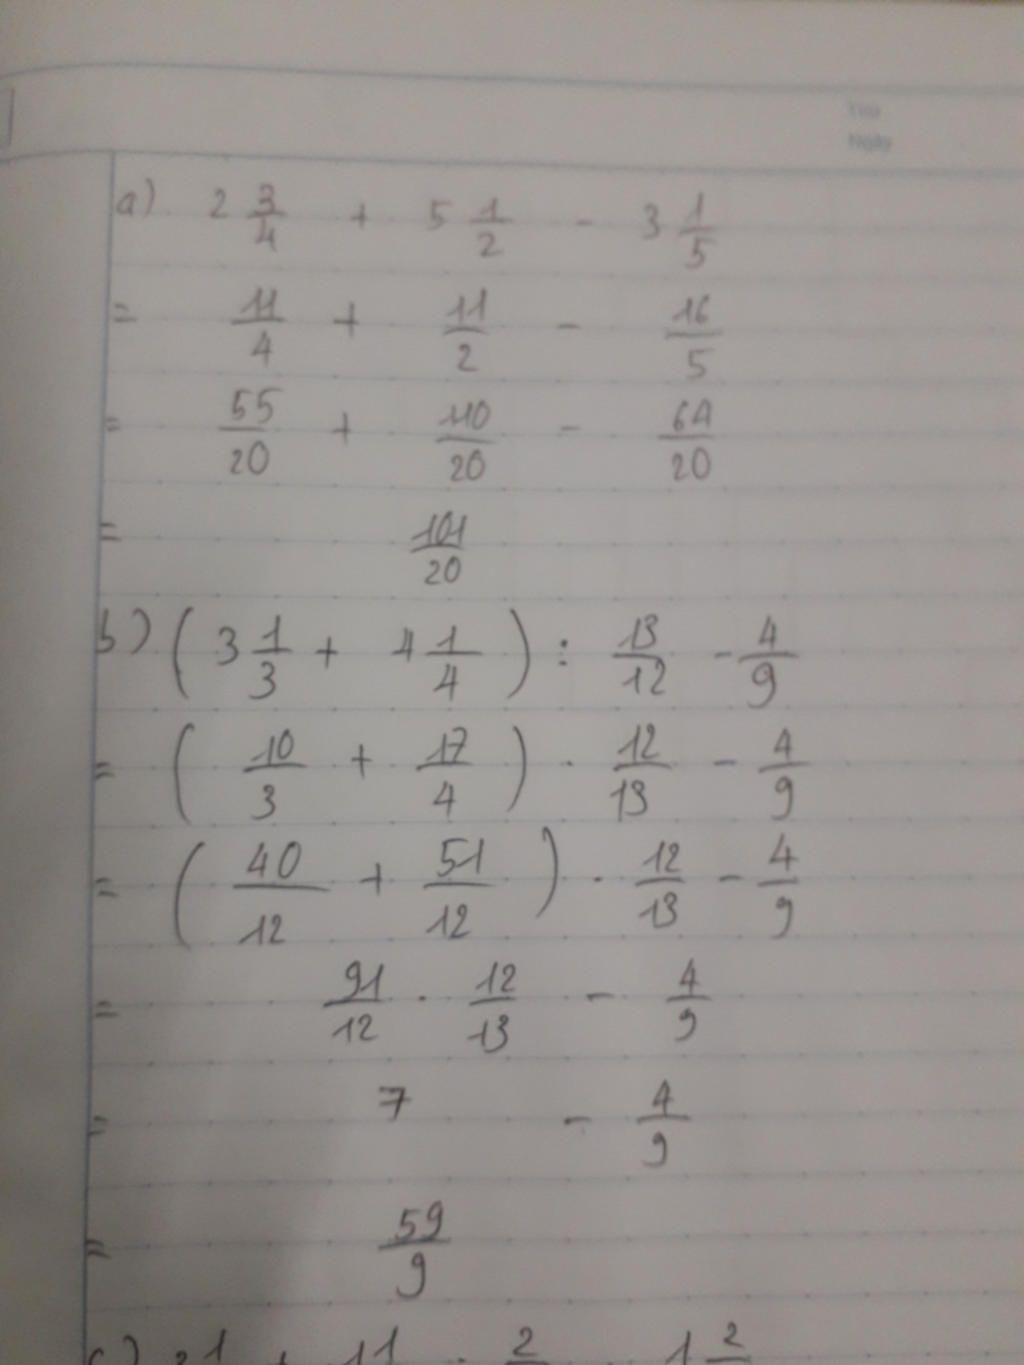 Thứ
Ngày
a) 2 3/4 + 5 1/2 - 3 1/5
= 11/4 + 11/2 - 16/5
= 55/20 + 110/20 - 64/20
= 101/20
b) (3 1/3 + 4 1/4) : 13/12 - 4/9
= (10/3 + 17/4) . 12/13 - 4/9
= (40/12 + 51/12) . 12/13 - 4/9
= 91/12 . 12/13 - 4/9
= 7 - 4/9
= 59/9